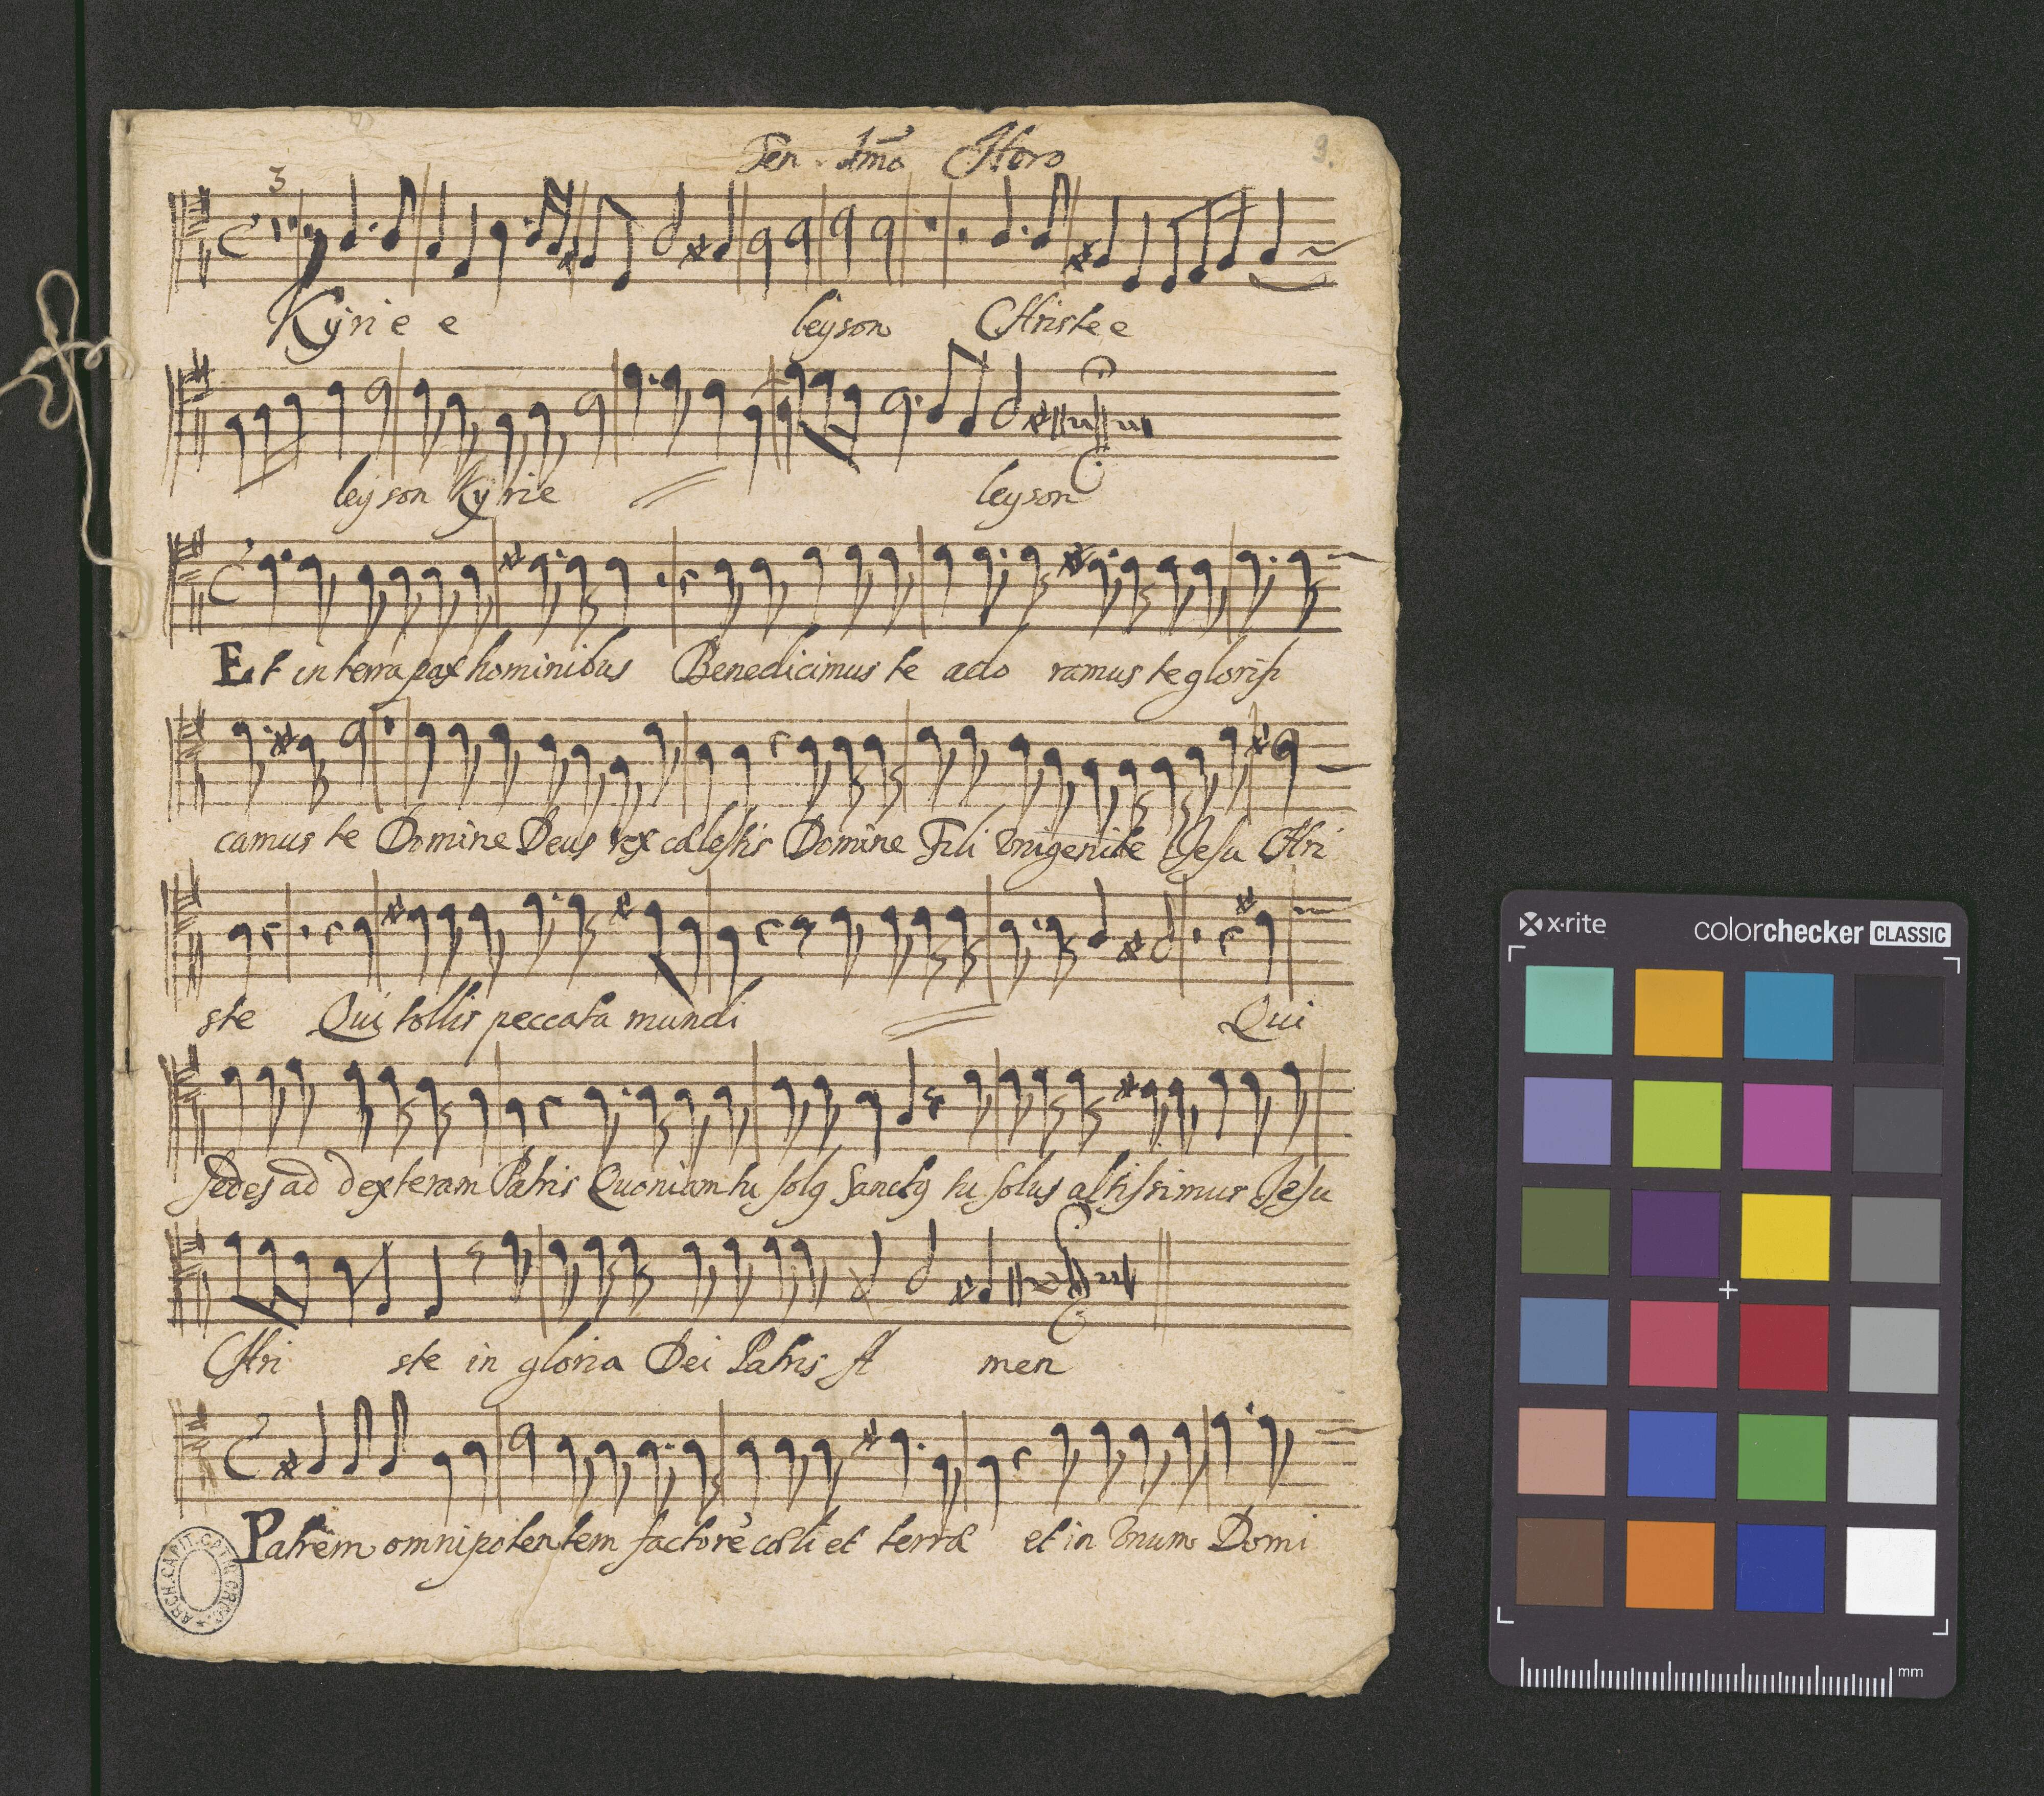 Ten. 1mo Choro
9.
3
Kyri e e leyson Christe e
leyson Kyrie leyson
Et in terra pax hominibus Benedicimus te ado ramus te glorifi
camus te Domine Deus rex cælestis Domine Fili Vnigenite Jesu Chri
ste Qui tollis peccata mundi Qui
sedes ad dexteram Patris Quoniam tu solq Sanctq tu solus altissimus Jesu
Chri ste in gloria Dei Patris A men
Patrem omnipotentem factorē cœli et terræ et in Vnum Domi
ARCH. CAPIT. CATH. CRAC.
x-rite
colorchecker CLASSIC
mm